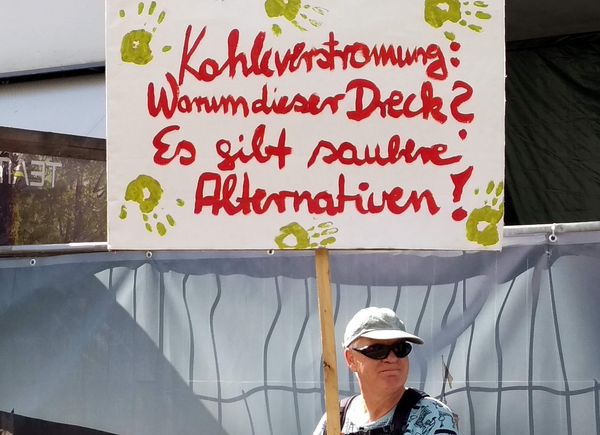 Kohleverstromung:
Warum dieser Dreck?
Es gibt saubere
Alternativen!
TEAT